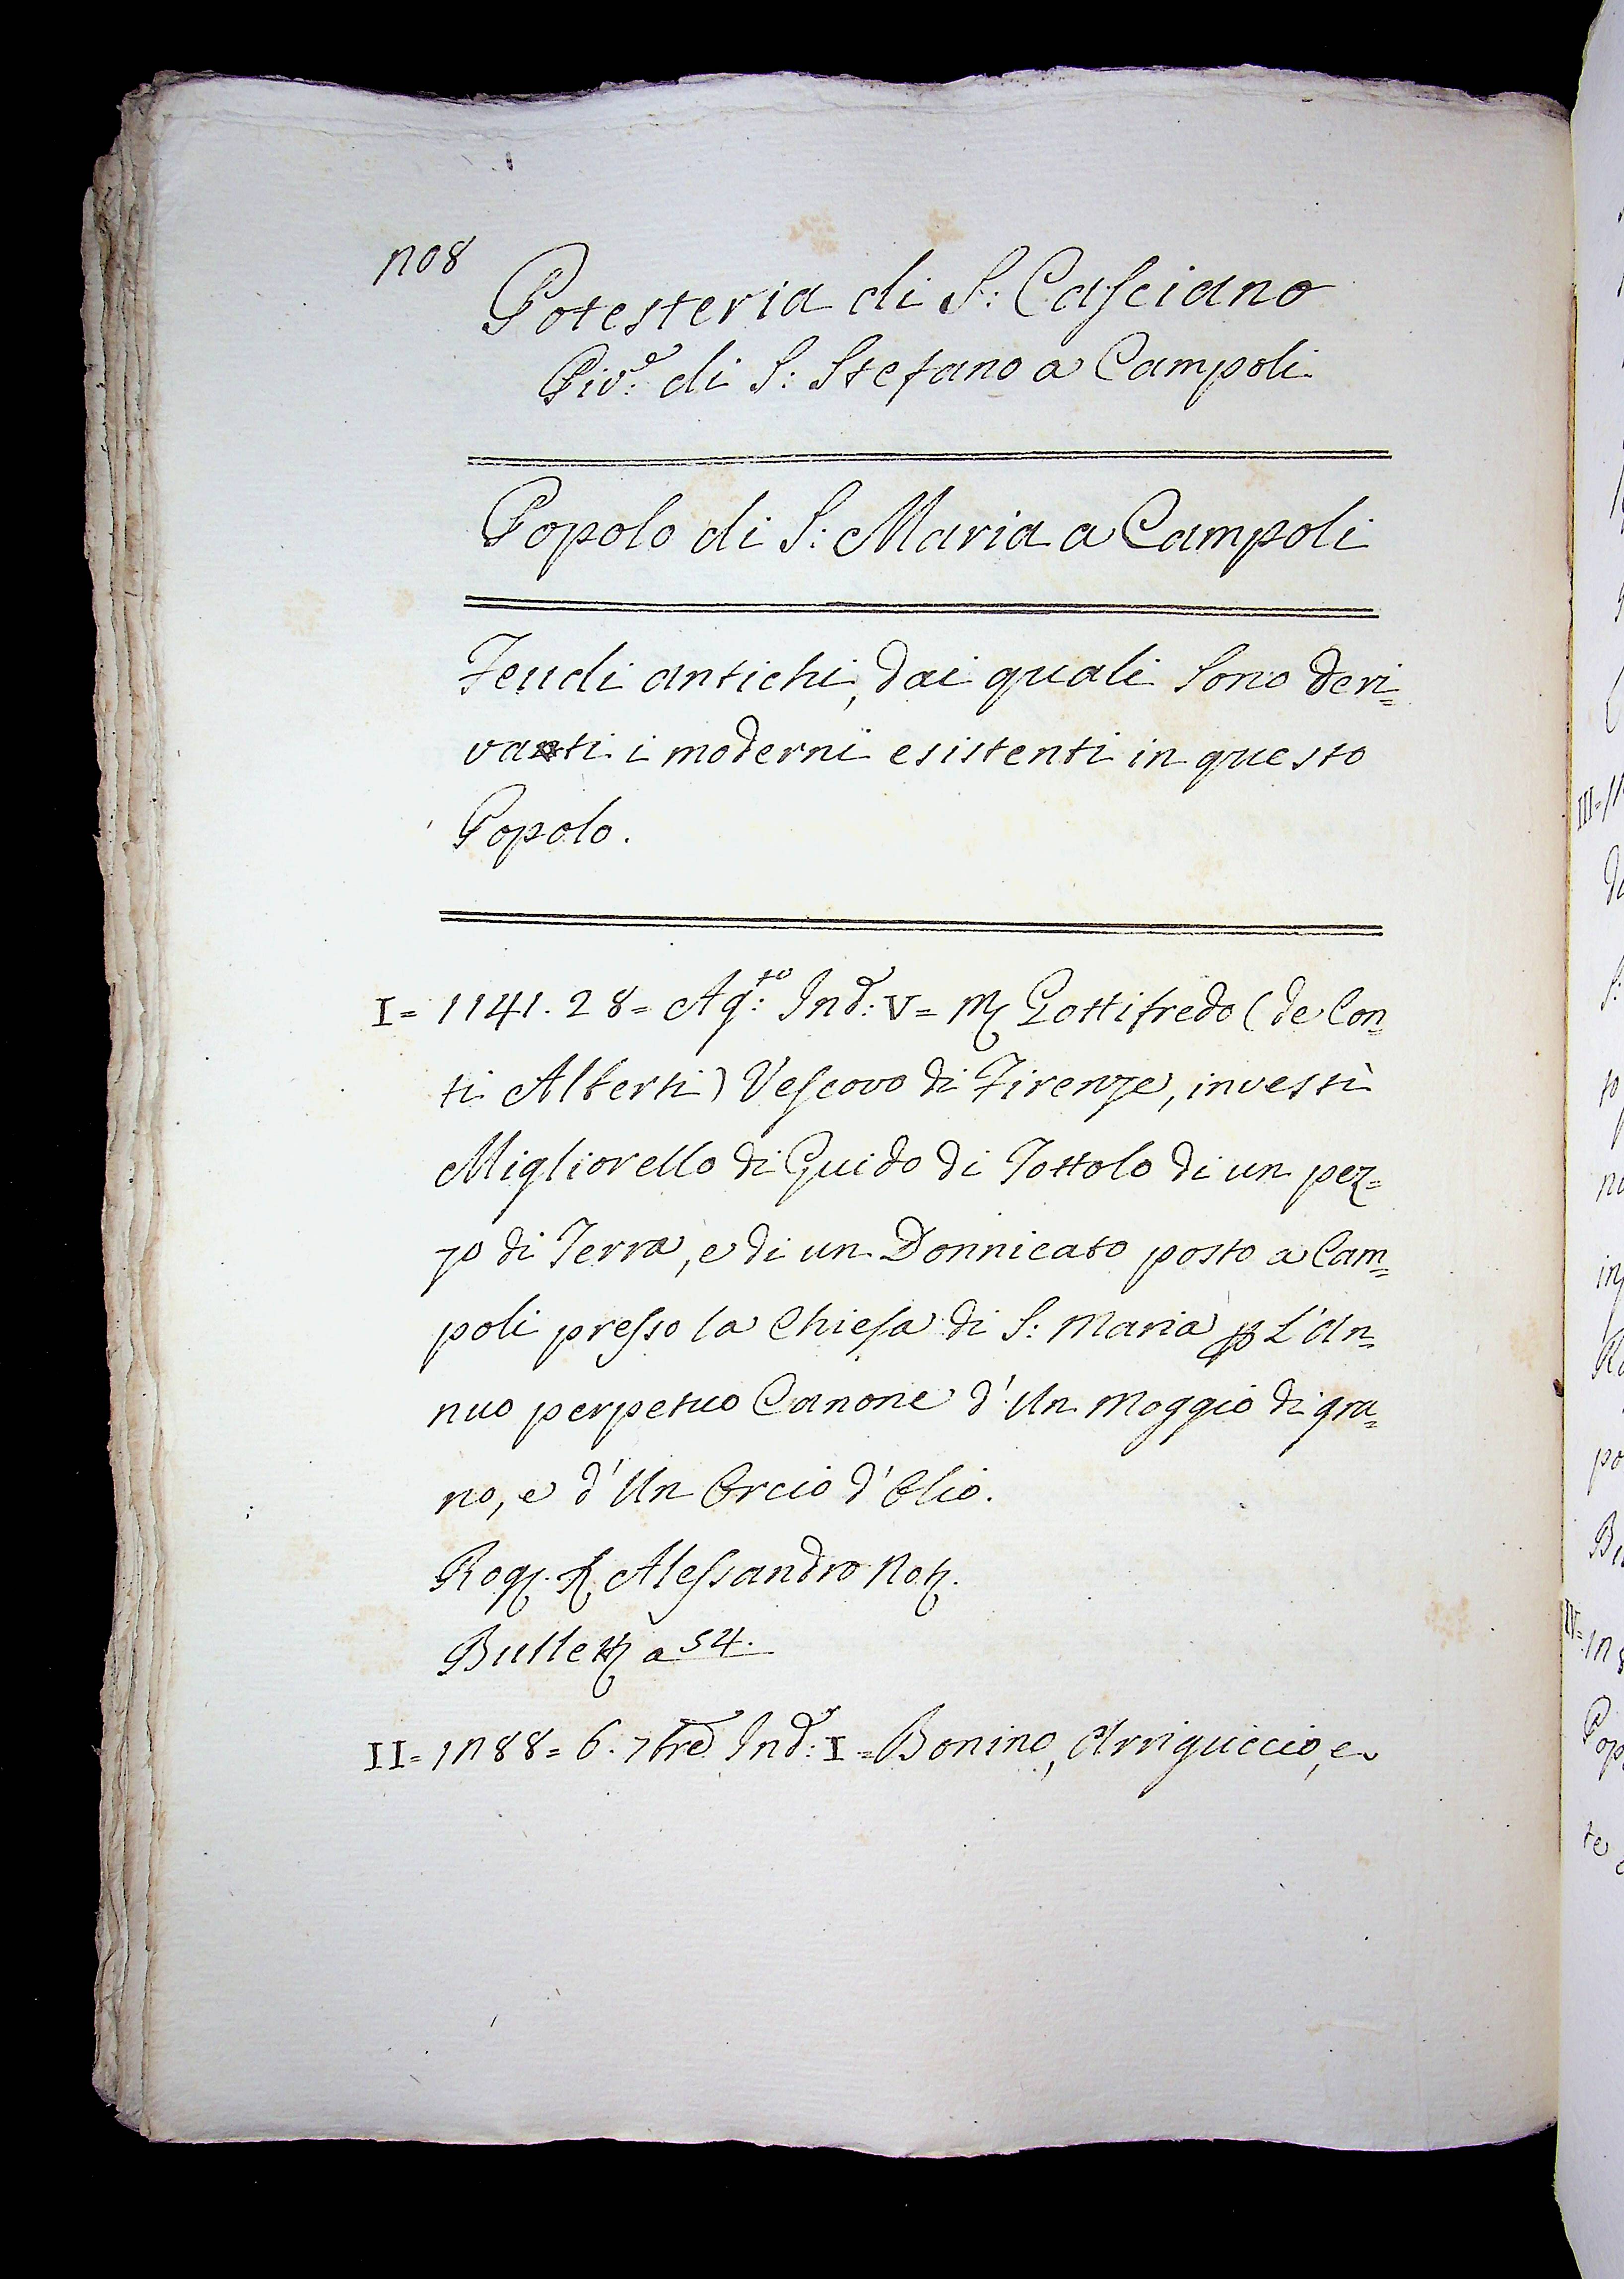 108
Potesteria di S: Casciano
Piv.e di S: Stefano a Campoli
Popolo di S: Maria a Campoli
Feudi antichi, dai quali sono deri=
vanti i moderni esistenti in questo
Popolo.
I= 1141. 28= Ag.to: Ind: V= M Gottifredo (de Con=
ti Alberti) Vescovo di Firenze, investì
Migliorello di Guido di Tottolo di un pez=
zo di Terra, e di un Donnicato posto a Cam=
poli presso la Chiesa di S: Maria p L'An=
nuo perpetuo Canone d'Un Moggio di gra=
no, e d'Un Orcio d'Olio.
Rog. Alessandro Not.
Bullett a 54.
II= 1188= 6. 7bre Ind: I= Bonino, Arriguccio, e